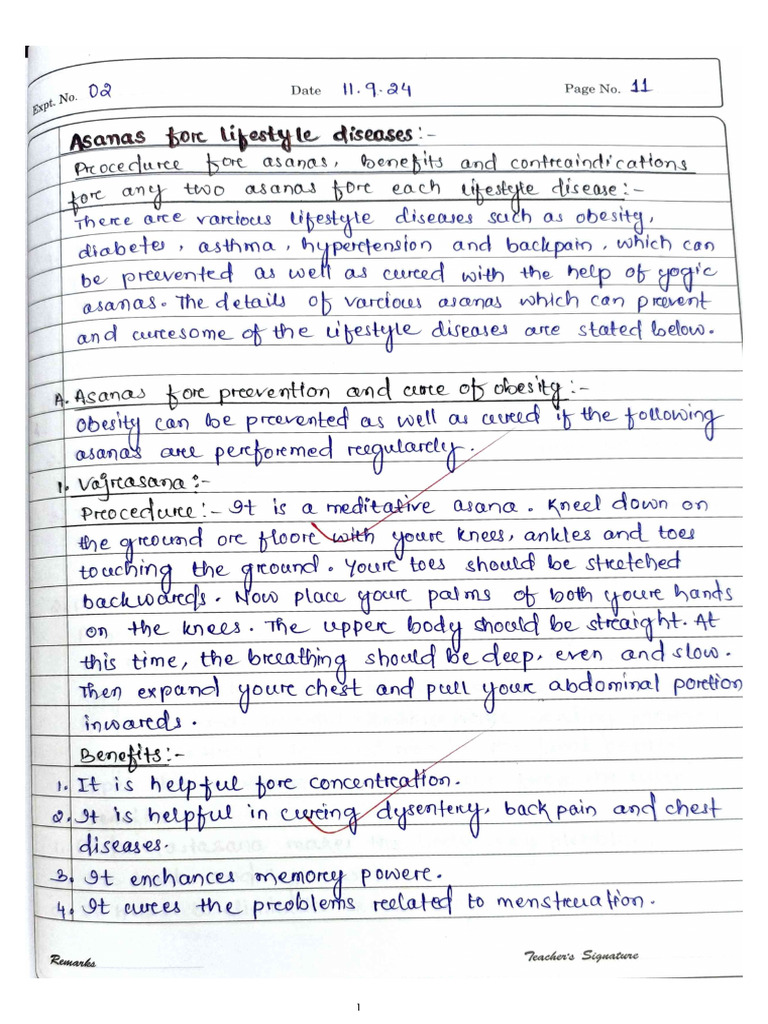 Expt. No. 02 Date 11.9.24 Page No. 11
Asanas for lifestyle diseases:-
Procedure for asanas, benefits and contraindications
for any two asanas for each lifestyle disease:-
There are various lifestyle diseases such as obesity,
diabetes, asthma, hypertension and backpain, which can
be prevented as well as cured with the help of yogic
asanas. The details of various asanas which can prevent
and cure some of the lifestyle diseases are stated below.
A. Asanas for prevention and cure of obesity:-
Obesity can be prevented as well as cured if the following
asanas are performed regularly.
1. Vajrasana:-
Procedure:- It is a meditative asana. Kneel down on
the ground or floor with your knees, ankles and toes
touching the ground. Your toes should be stretched
backwards. Now place your palms of both your hands
on the knees. The upper body should be straight. At
this time, the breathing should be deep, even and slow.
Then expand your chest and pull your abdominal portion
inwards.
Benefits:-
1. It is helpful for concentration.
2. It is helpful in curing dysentery, back pain and chest
diseases.
3. It enchances memory power.
4. It cures the problems related to menstruation.
Remarks Teacher's Signature
1